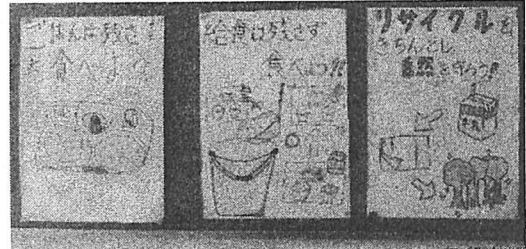 ごはんは残さず
食べよう
給食は残さず
食べよう!!
リサイクルを
きちんとし
自然を守ろう!!